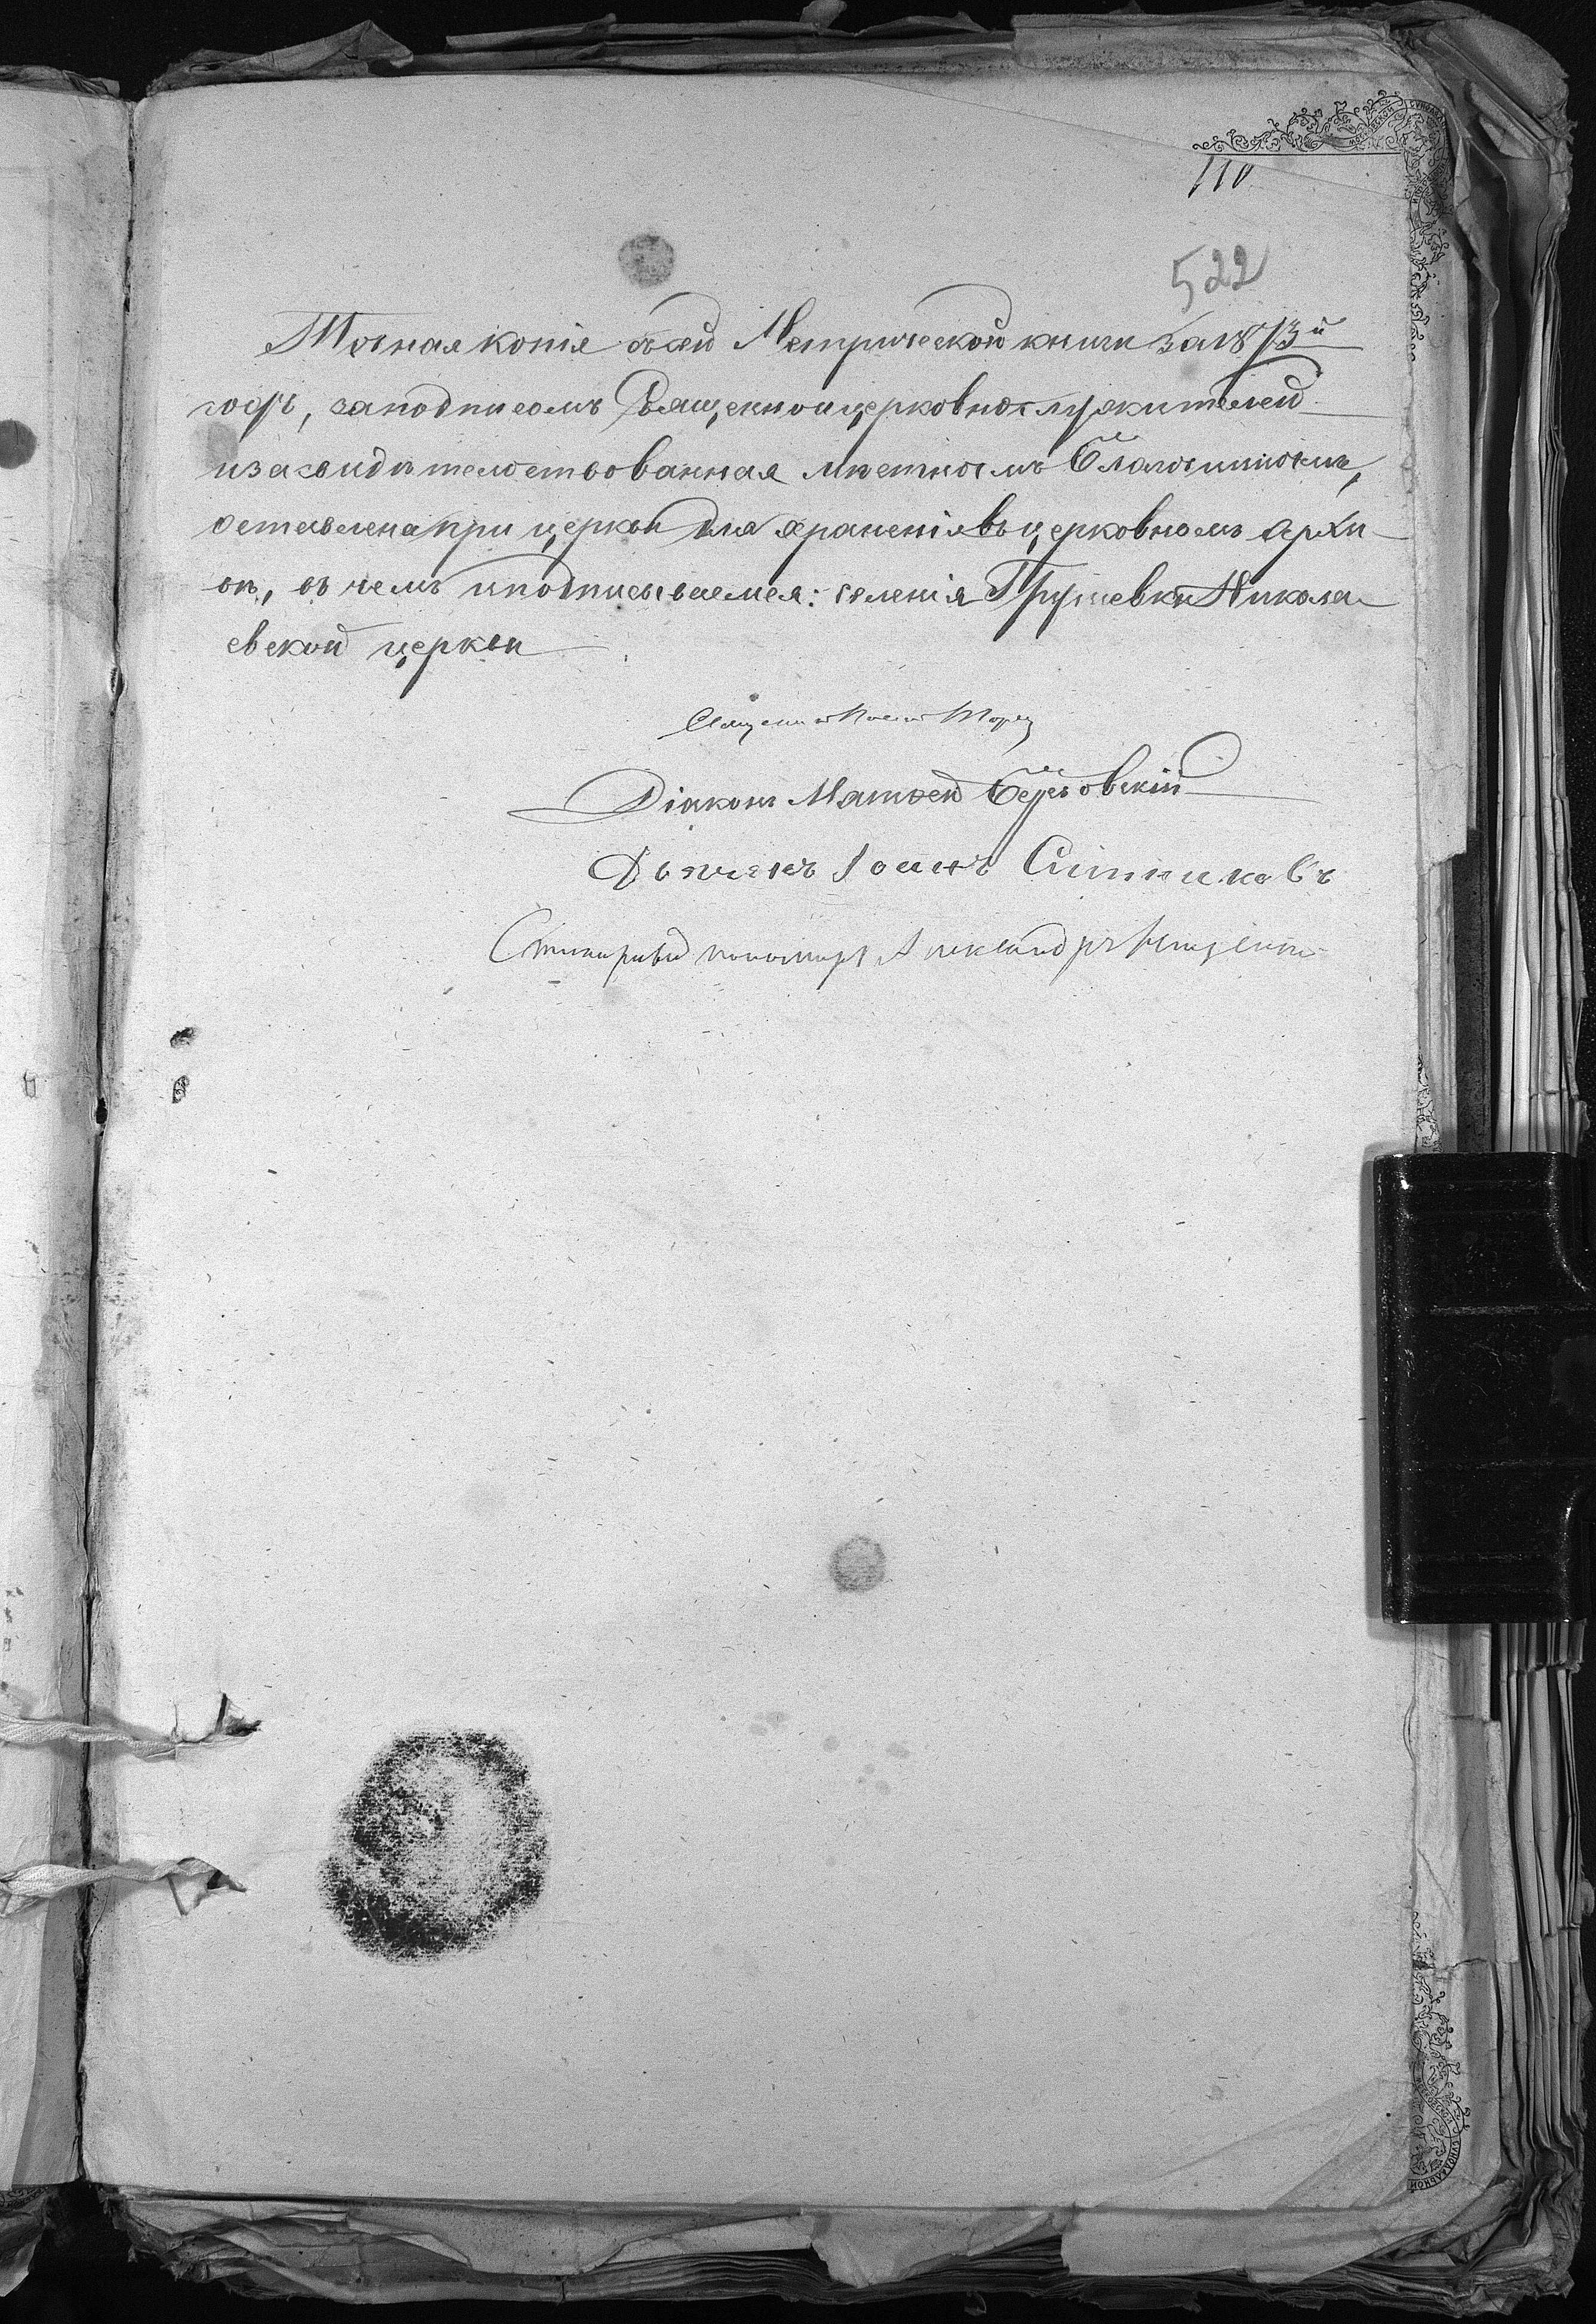 110
522
Точная копія съ сей Метрической книги за 1873й
годъ, за подписомъ Священноицерковнослужителей
и засвидѣтельствованная мѣстнымъ Благочиннымъ,
оставлена при церкви для храненія въ церковномъ архи-
вѣ, въ чемъ и подписываемся: селенія Грушевки Никола-
евской церкви
Священникъ
Діаконъ Матѳей Березовскій
Дьячекъ Іоанъ Ситниковъ
пономарь Александръ